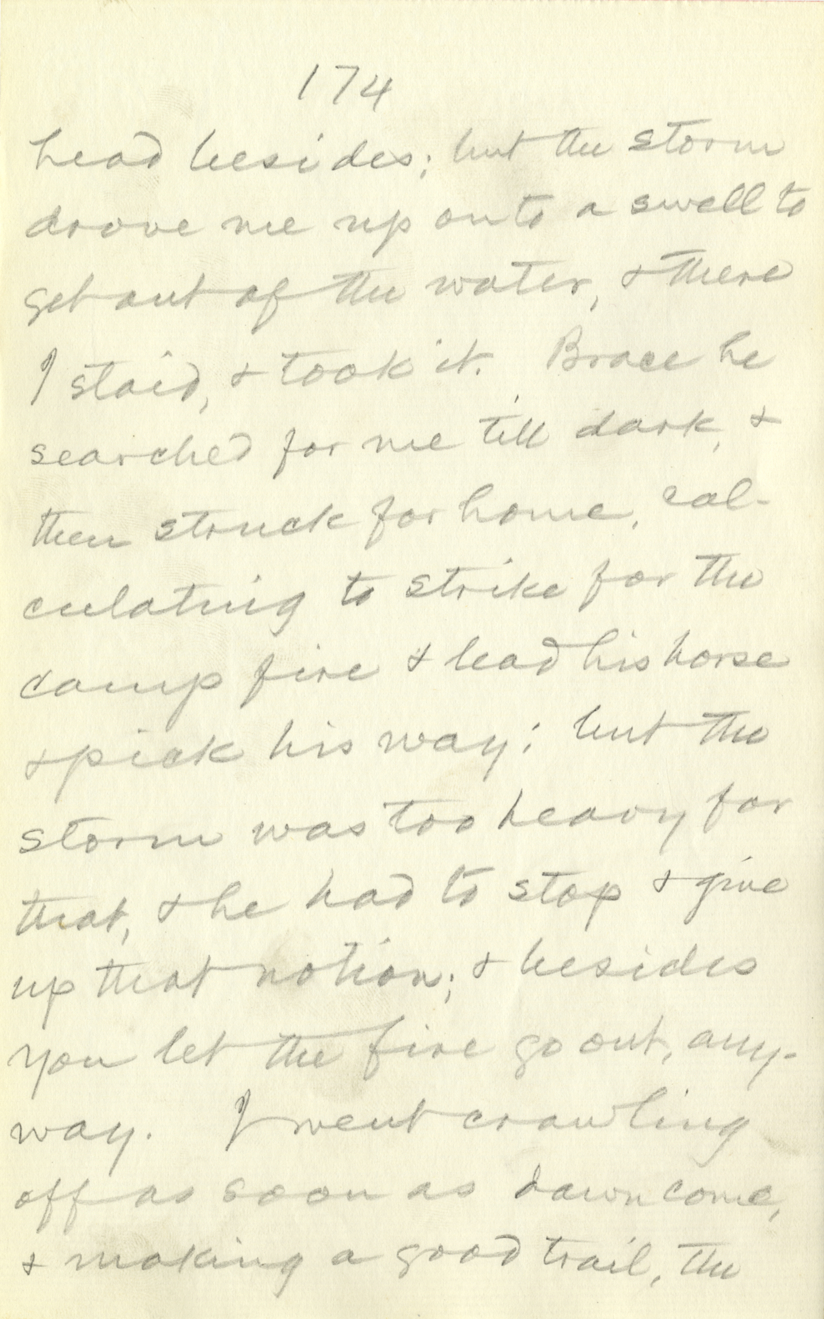 174
head besides; but the storm
drove me up onto a swell to
get out of the water, & there
I staid, & took it. Brace he
searched for me till dark, &
then struck for home, cal-
culating to strike for the
camp fire & lead his horse
& pick his way; but the
storm was too heavy for
that, & he had to stop & give
up that notion; & besides
you let the fire go out, any-
way. I went crawling
off as soon as dawn come,
& making a good trail, the